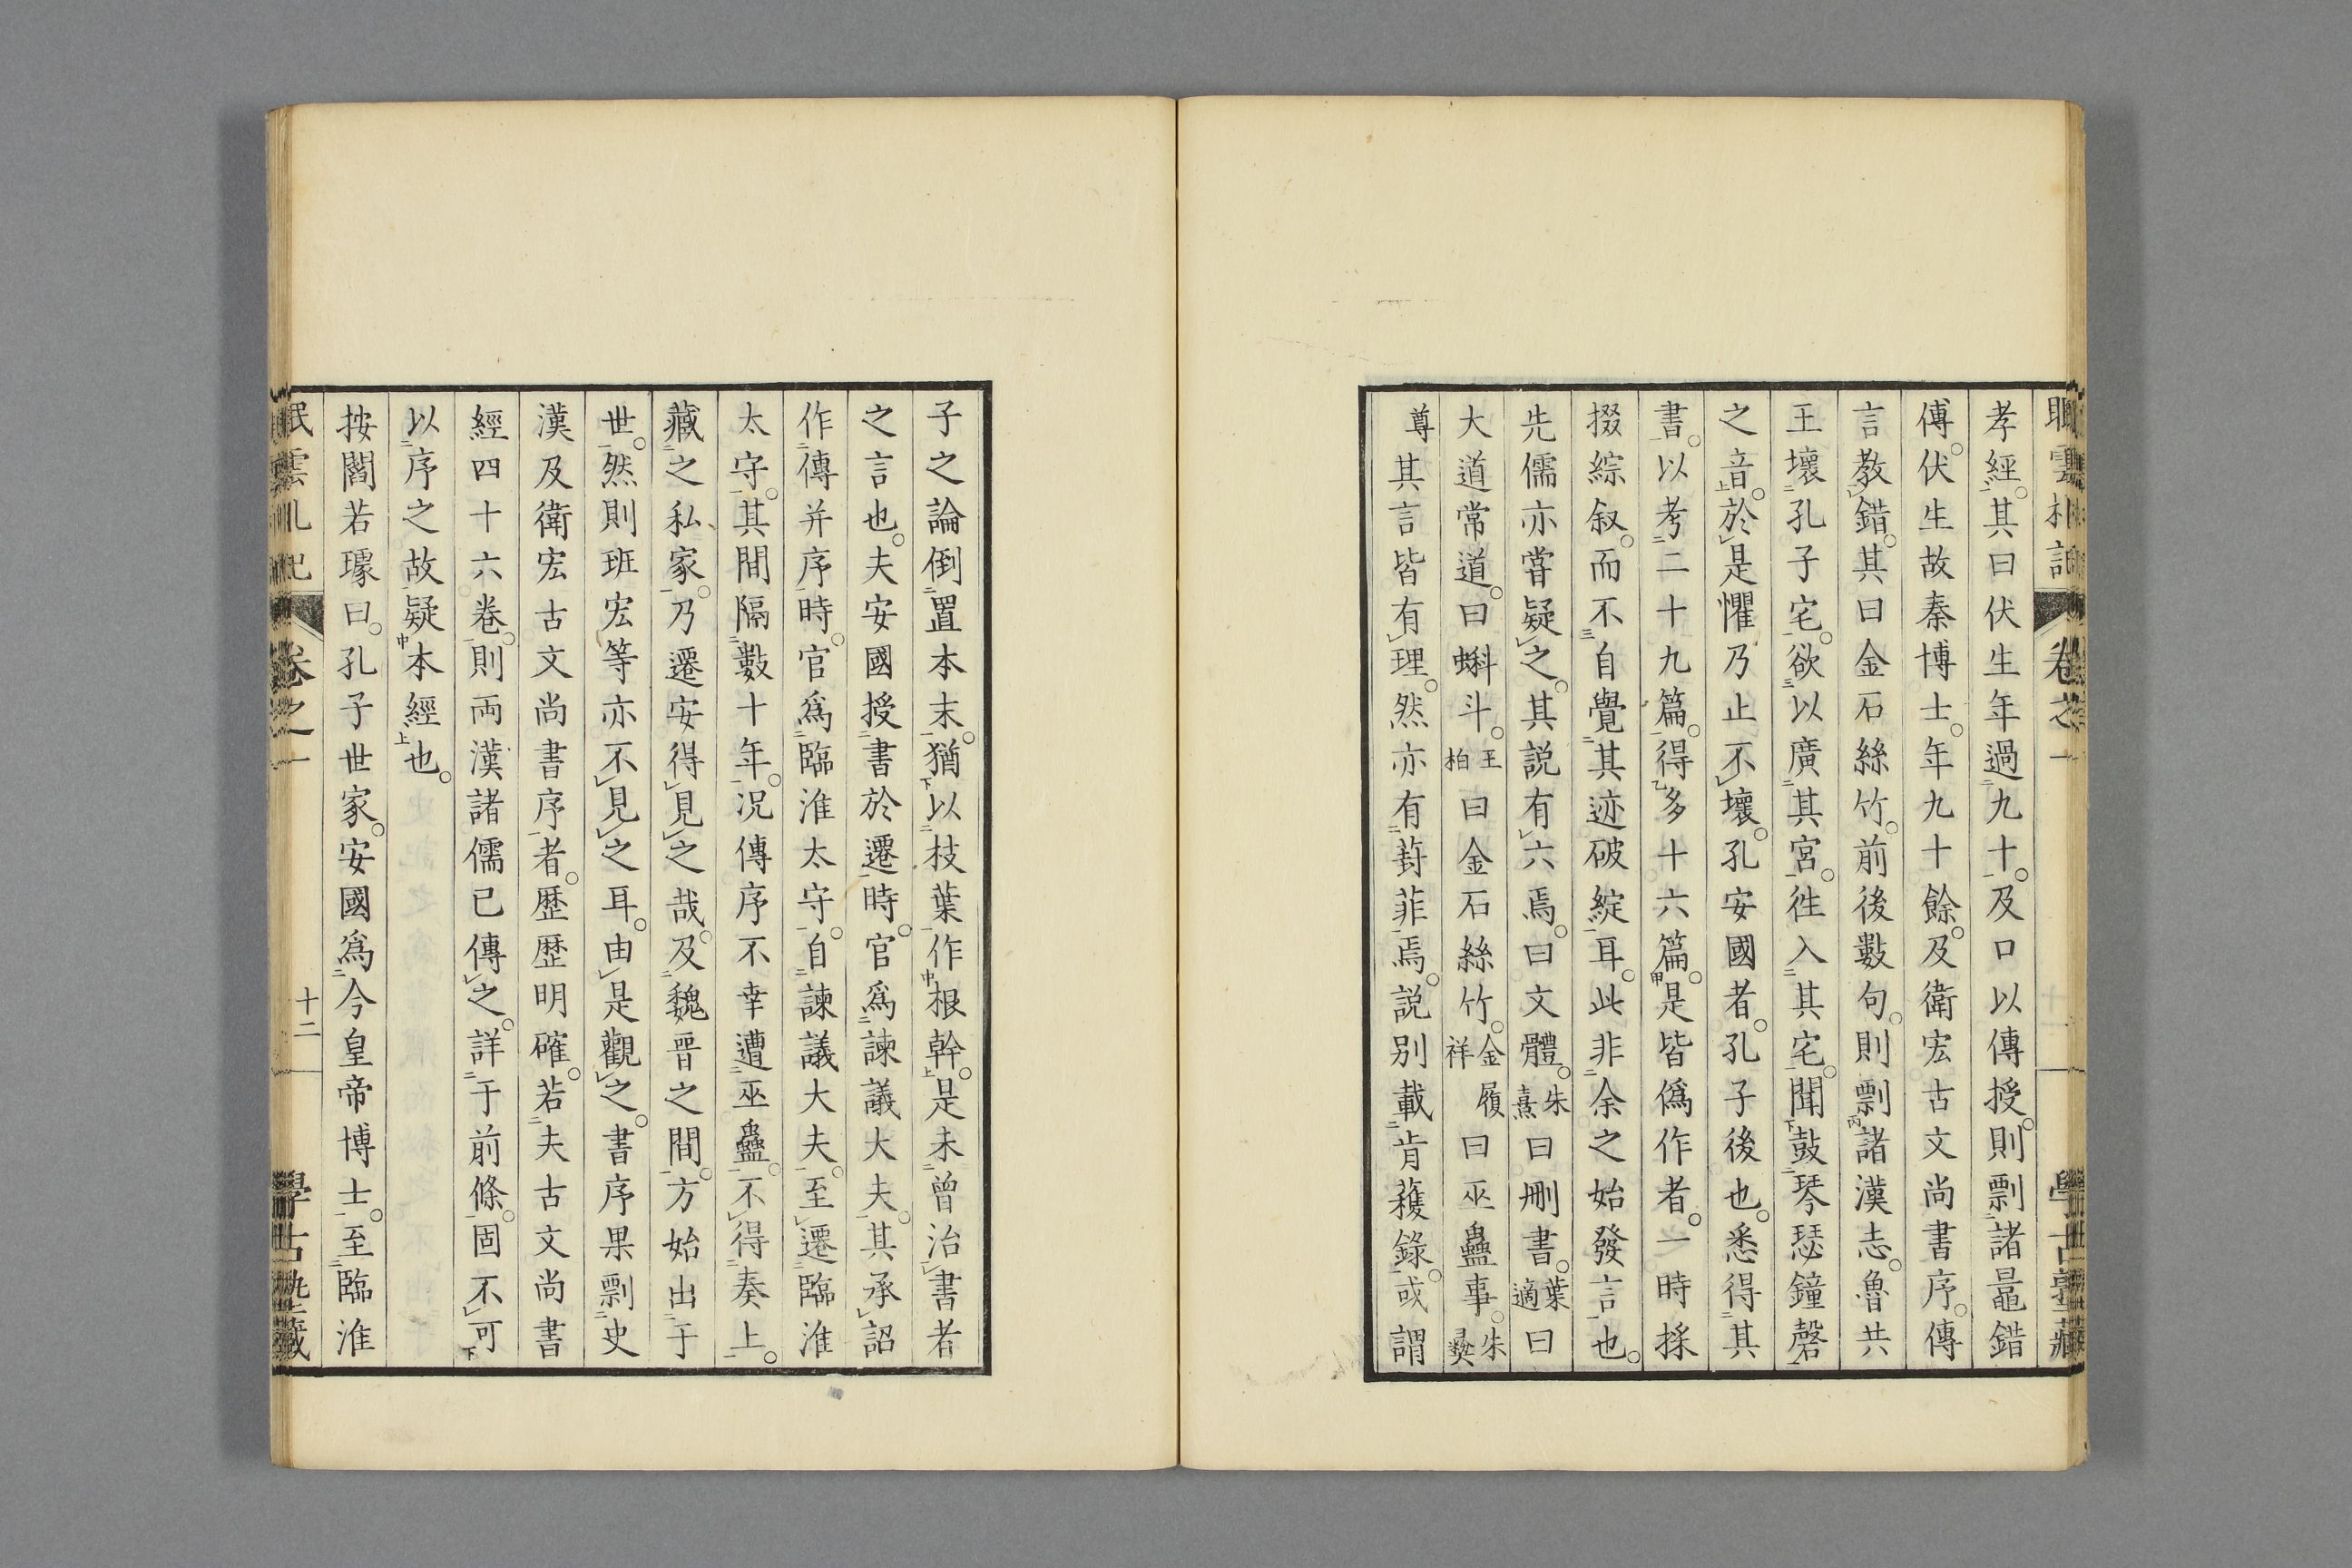 孝經。其曰伏生年過九十。及口以傳授。則剽諸鼂錯
傳。伏生故秦博士。年九十餘。及衛宏古文尚書序。傳
言教錯。其曰金石絲竹。前後數句。則剽諸漢志。魯共
王壞孔子宅。欲以廣其宮。徃入其宅。聞鼓琴瑟鐘磬
之音。於是懼乃止不壞。孔安國者。孔子後也。悉得其
書。以考二十九篇。得多十六篇。是皆僞作者。一時採
掇綜叙。而不自覺其迹破綻耳。此非余之始發言也。
先儒亦嘗疑之。其説有六焉。曰文體。朱熹曰刪書。葉適曰
大道常道。曰蝌斗。王柏曰金石絲竹。金履祥曰巫蠱事。朱彝
尊其言皆有理。然亦有葑菲焉。説別載肯蔱錄。或謂
子之論倒置本末。猶以枝葉作根幹。是未曾治書者
之言也。夫安國授書於遷時。官爲諫議大夫。其承詔
作傳并序時。官爲臨淮太守。自諫議大夫。至遷臨淮
太守。其間隔數十年。况傳序不幸遭巫蠱。不得奏上。
藏之私家。乃遷安得見之哉。及魏晋之間。方始出于
世。然則班宏等亦不見之耳。由是觀之。書序果剽史
漢及衛宏古文尚書序者。歴歴明確。若夫古文尚書
經四十六卷。則兩漢諸儒已傳之。詳于前條。固不可
以序之故疑本經也。
按閻若璩曰。孔子世家。安國爲今皇帝博士。至臨淮
卷之一
十二